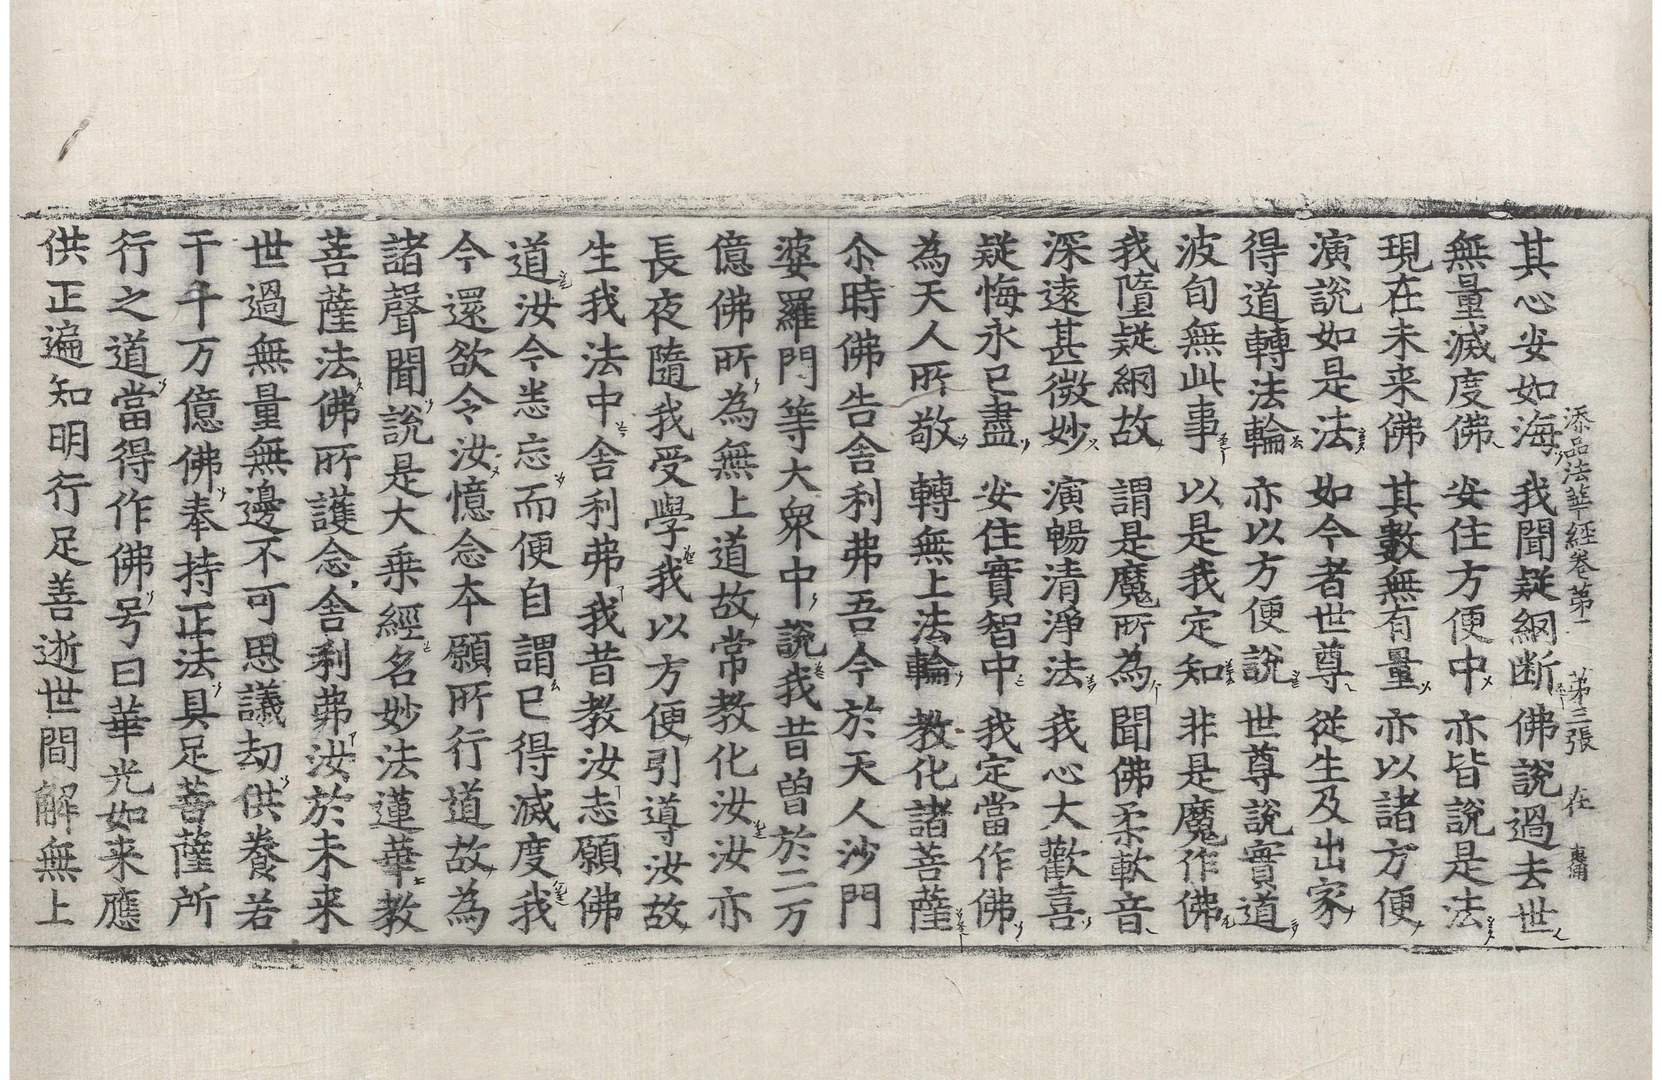 添品法華經卷第二　第三張　在
其心安如海　我聞疑網断　佛說過去世
無量滅度佛　安住方便中　亦皆說是法
現在未来佛　其數無有量　亦以諸方便
演說如是法　如今者世尊　從生及出家
得道轉法輪　亦以方便說　世尊說實道
波旬無此事　以是我定知　非是魔作佛
我墮疑網故　謂是魔所為　聞佛柔軟音
深遠甚微妙　演暢清淨法　我心大歡喜
疑悔永已盡　安住實智中　我定當作佛
為天人所敬　轉無上法輪　教化諸菩薩
尒時佛告舍利弗吾今於天人沙門
婆羅門等大衆中說我昔曾於二万
億佛所為無上道故常教化汝汝亦
長夜隨我受學我以方便引導汝故
生我法中舍利弗我昔教汝志願佛
道汝今悉忘而便自謂已得滅度我
今還欲令汝憶念本願所行道故為
諸聲聞說是大乗經名妙法蓮華教
菩薩法佛所護念舍利弗汝於未来
世過無量無邊不可思議劫供養若
干千万億佛奉持正法具足菩薩所
行之道當得作佛号曰華光如来應
供正遍知明行足善逝世間解無上